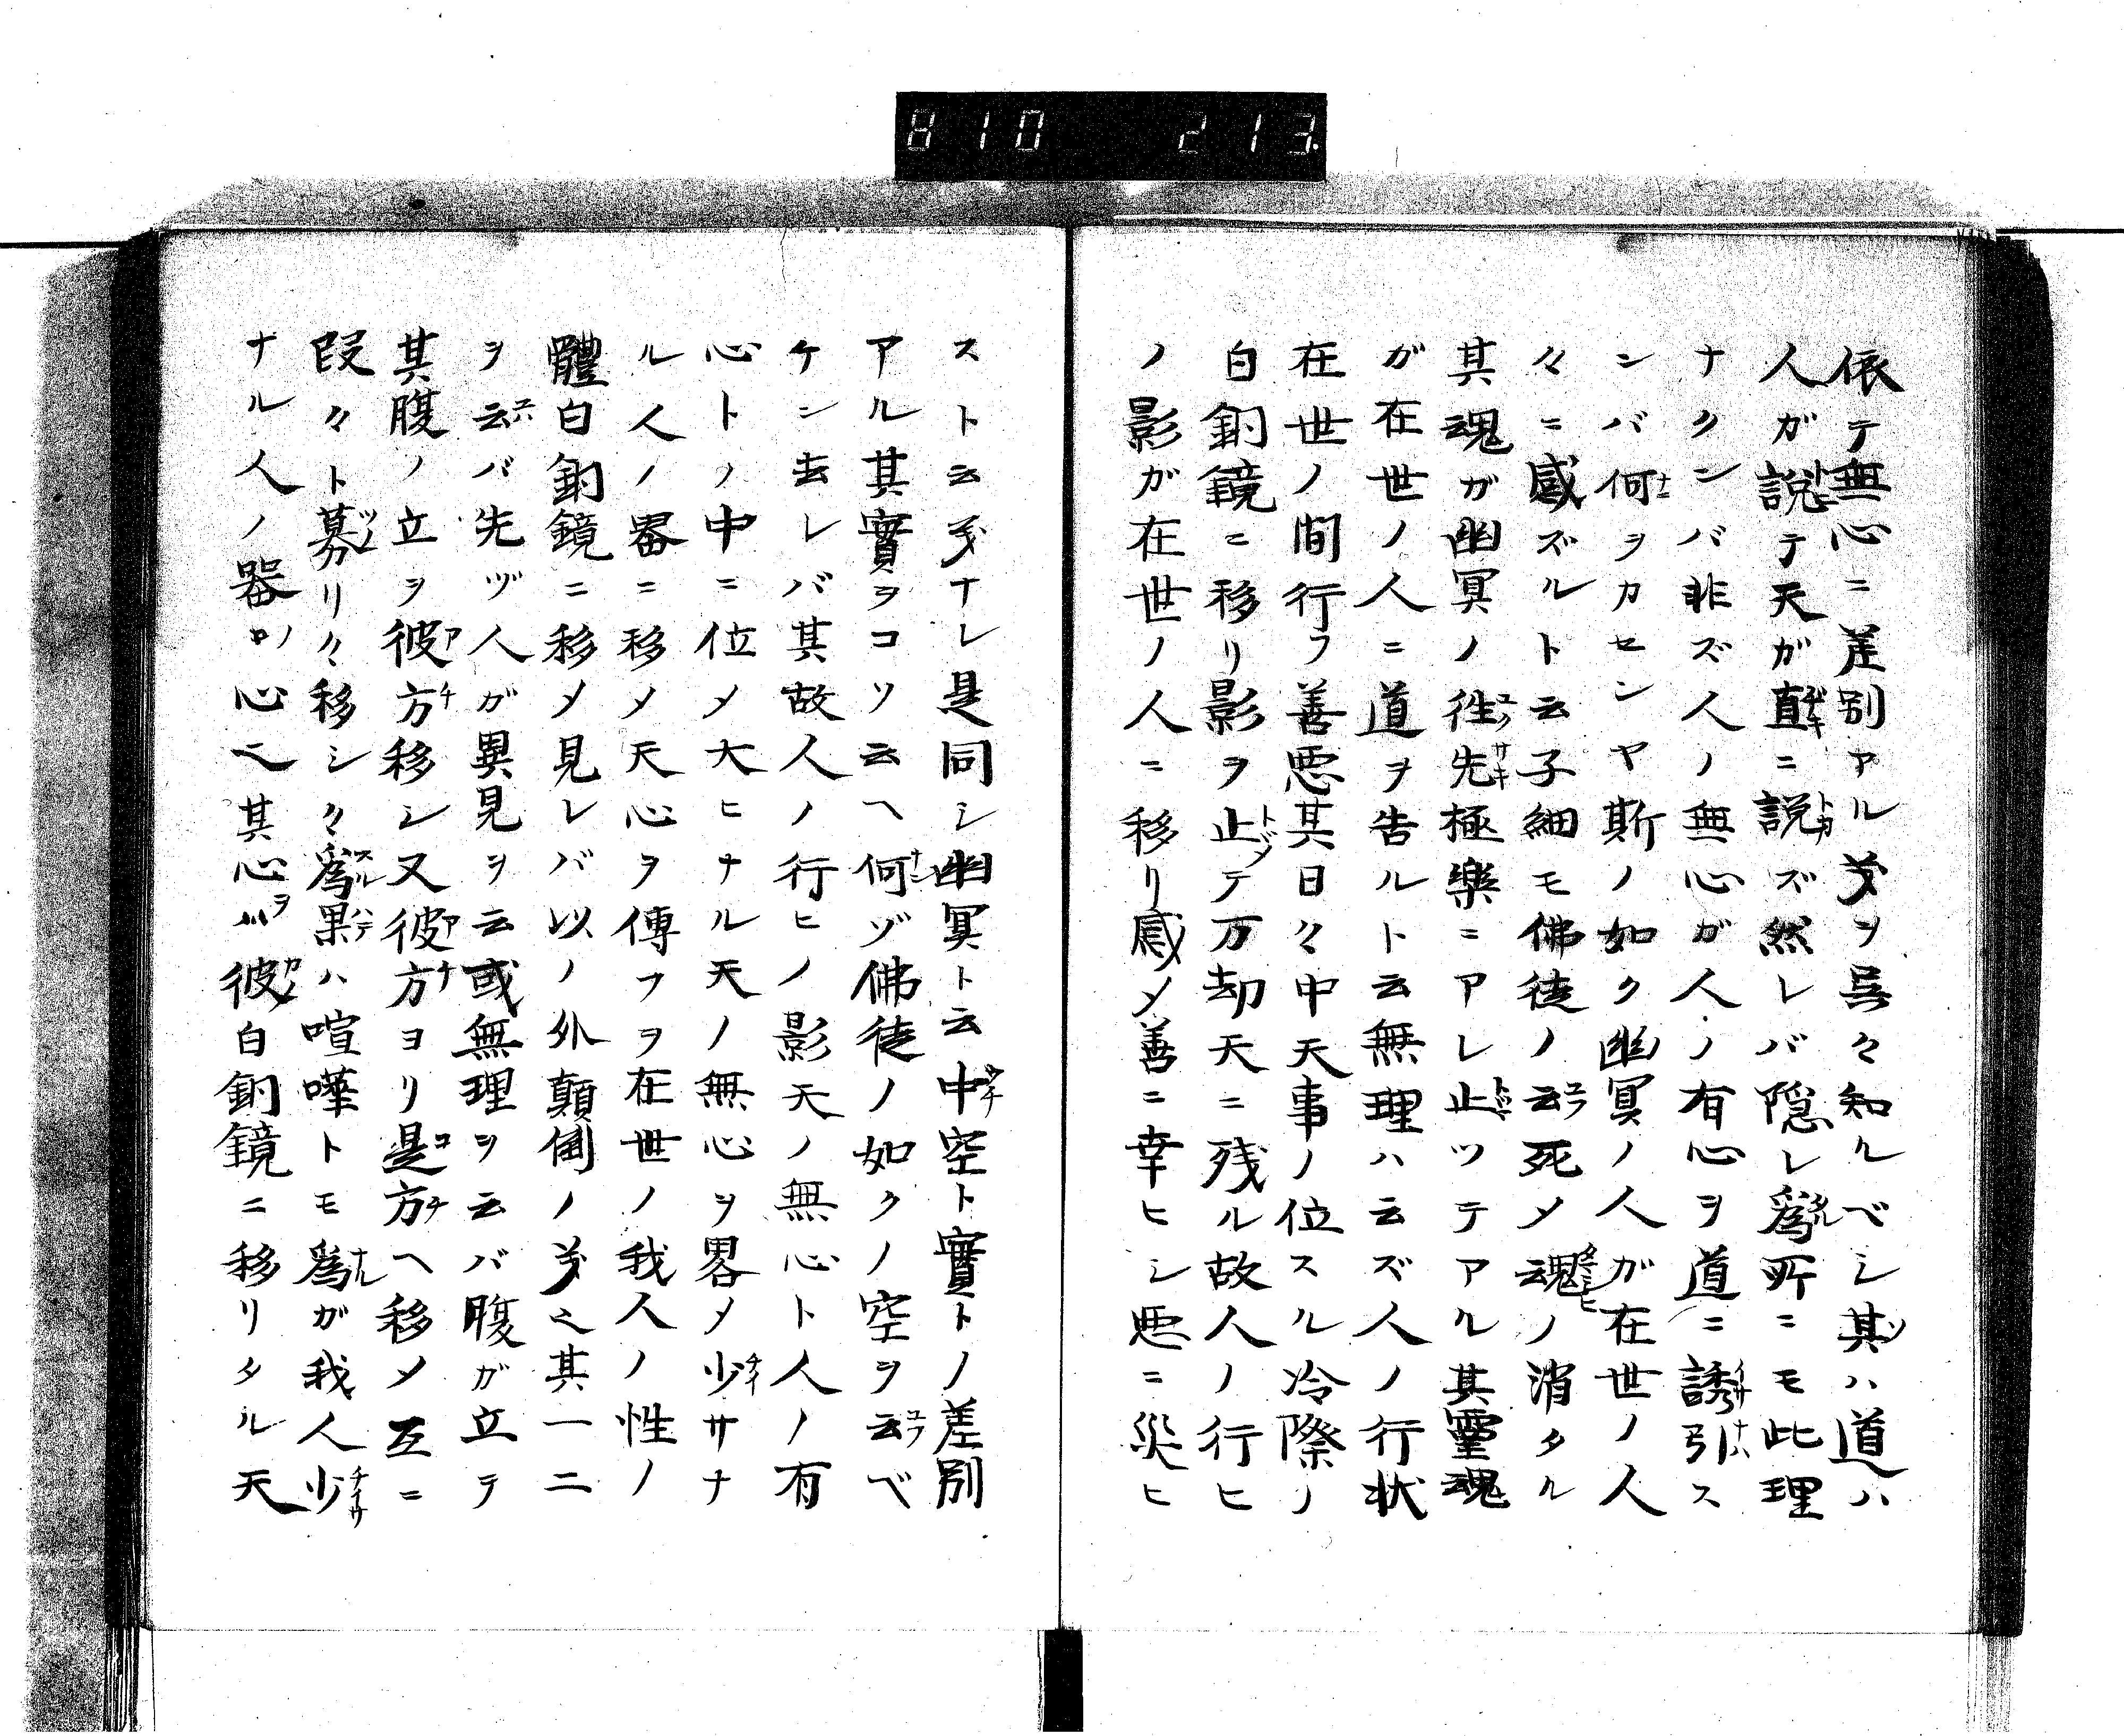 810 213.
依テ無心ニ差別アル𛂞ヲ呉々知ルベシ其ハ道ハ
人ガ説テ天ガ直ニ説ズ然レバ隠レ為所ニモ此理
ナクンバ非ズ人ノ無心ガ人ノ有心ヲ道ニ誘引ス
ンバ何ヲカセンヤ斯ノ如ク幽冥ノ人ガ在世ノ人
々ニ感ズルト云子細モ佛徒ノ云死〆魂ノ消タル
其魂ガ幽冥ノ徃先極樂ニアレ止ツテアル其靈魂
ガ在世ノ人ニ道ヲ告ルト云無理ハ云ズ人ノ行状
在世ノ間行フ善悪其日々中天事ノ位スル冷際ノ
白銅鏡ニ移リ影ヲ止テ万劫天ニ残ル故人ノ行ヒ
ノ影ガ在世ノ人ニ移リ感〆善ニ幸ヒシ悪ニ災ヒ
スト云ヿナレ是同シ幽冥ト云中空ト實トノ差別
アル其實ヲコソ云ヘ何ゾ佛徒ノ如クノ空ヲ云ベ
ケン去レバ其故人ノ行ヒノ影天ノ無心ト人ノ有
心トノ中ニ位〆大ヒナル天ノ無心ヲ畧〆少サナ
ル人ノ器ニ移〆天心ヲ傳フヲ在世ノ我人ノ性ノ
體白銅鏡ニ移〆見レバ以ノ外顛倒ノ𫝆也其一二
ヲ云バ先ヅ人ガ異見ヲ云或無理ヲ云バ腹ガ立テ
其腹ノ立ヲ彼方移シ又彼方ヨリ是方ヘ移〆互ニ
段々ト募リ々移シ々為果ハ喧嘩トモ為ガ我人少
ナル人ノ器ノ心也其心ヲ彼白銅鏡ニ移リタル天